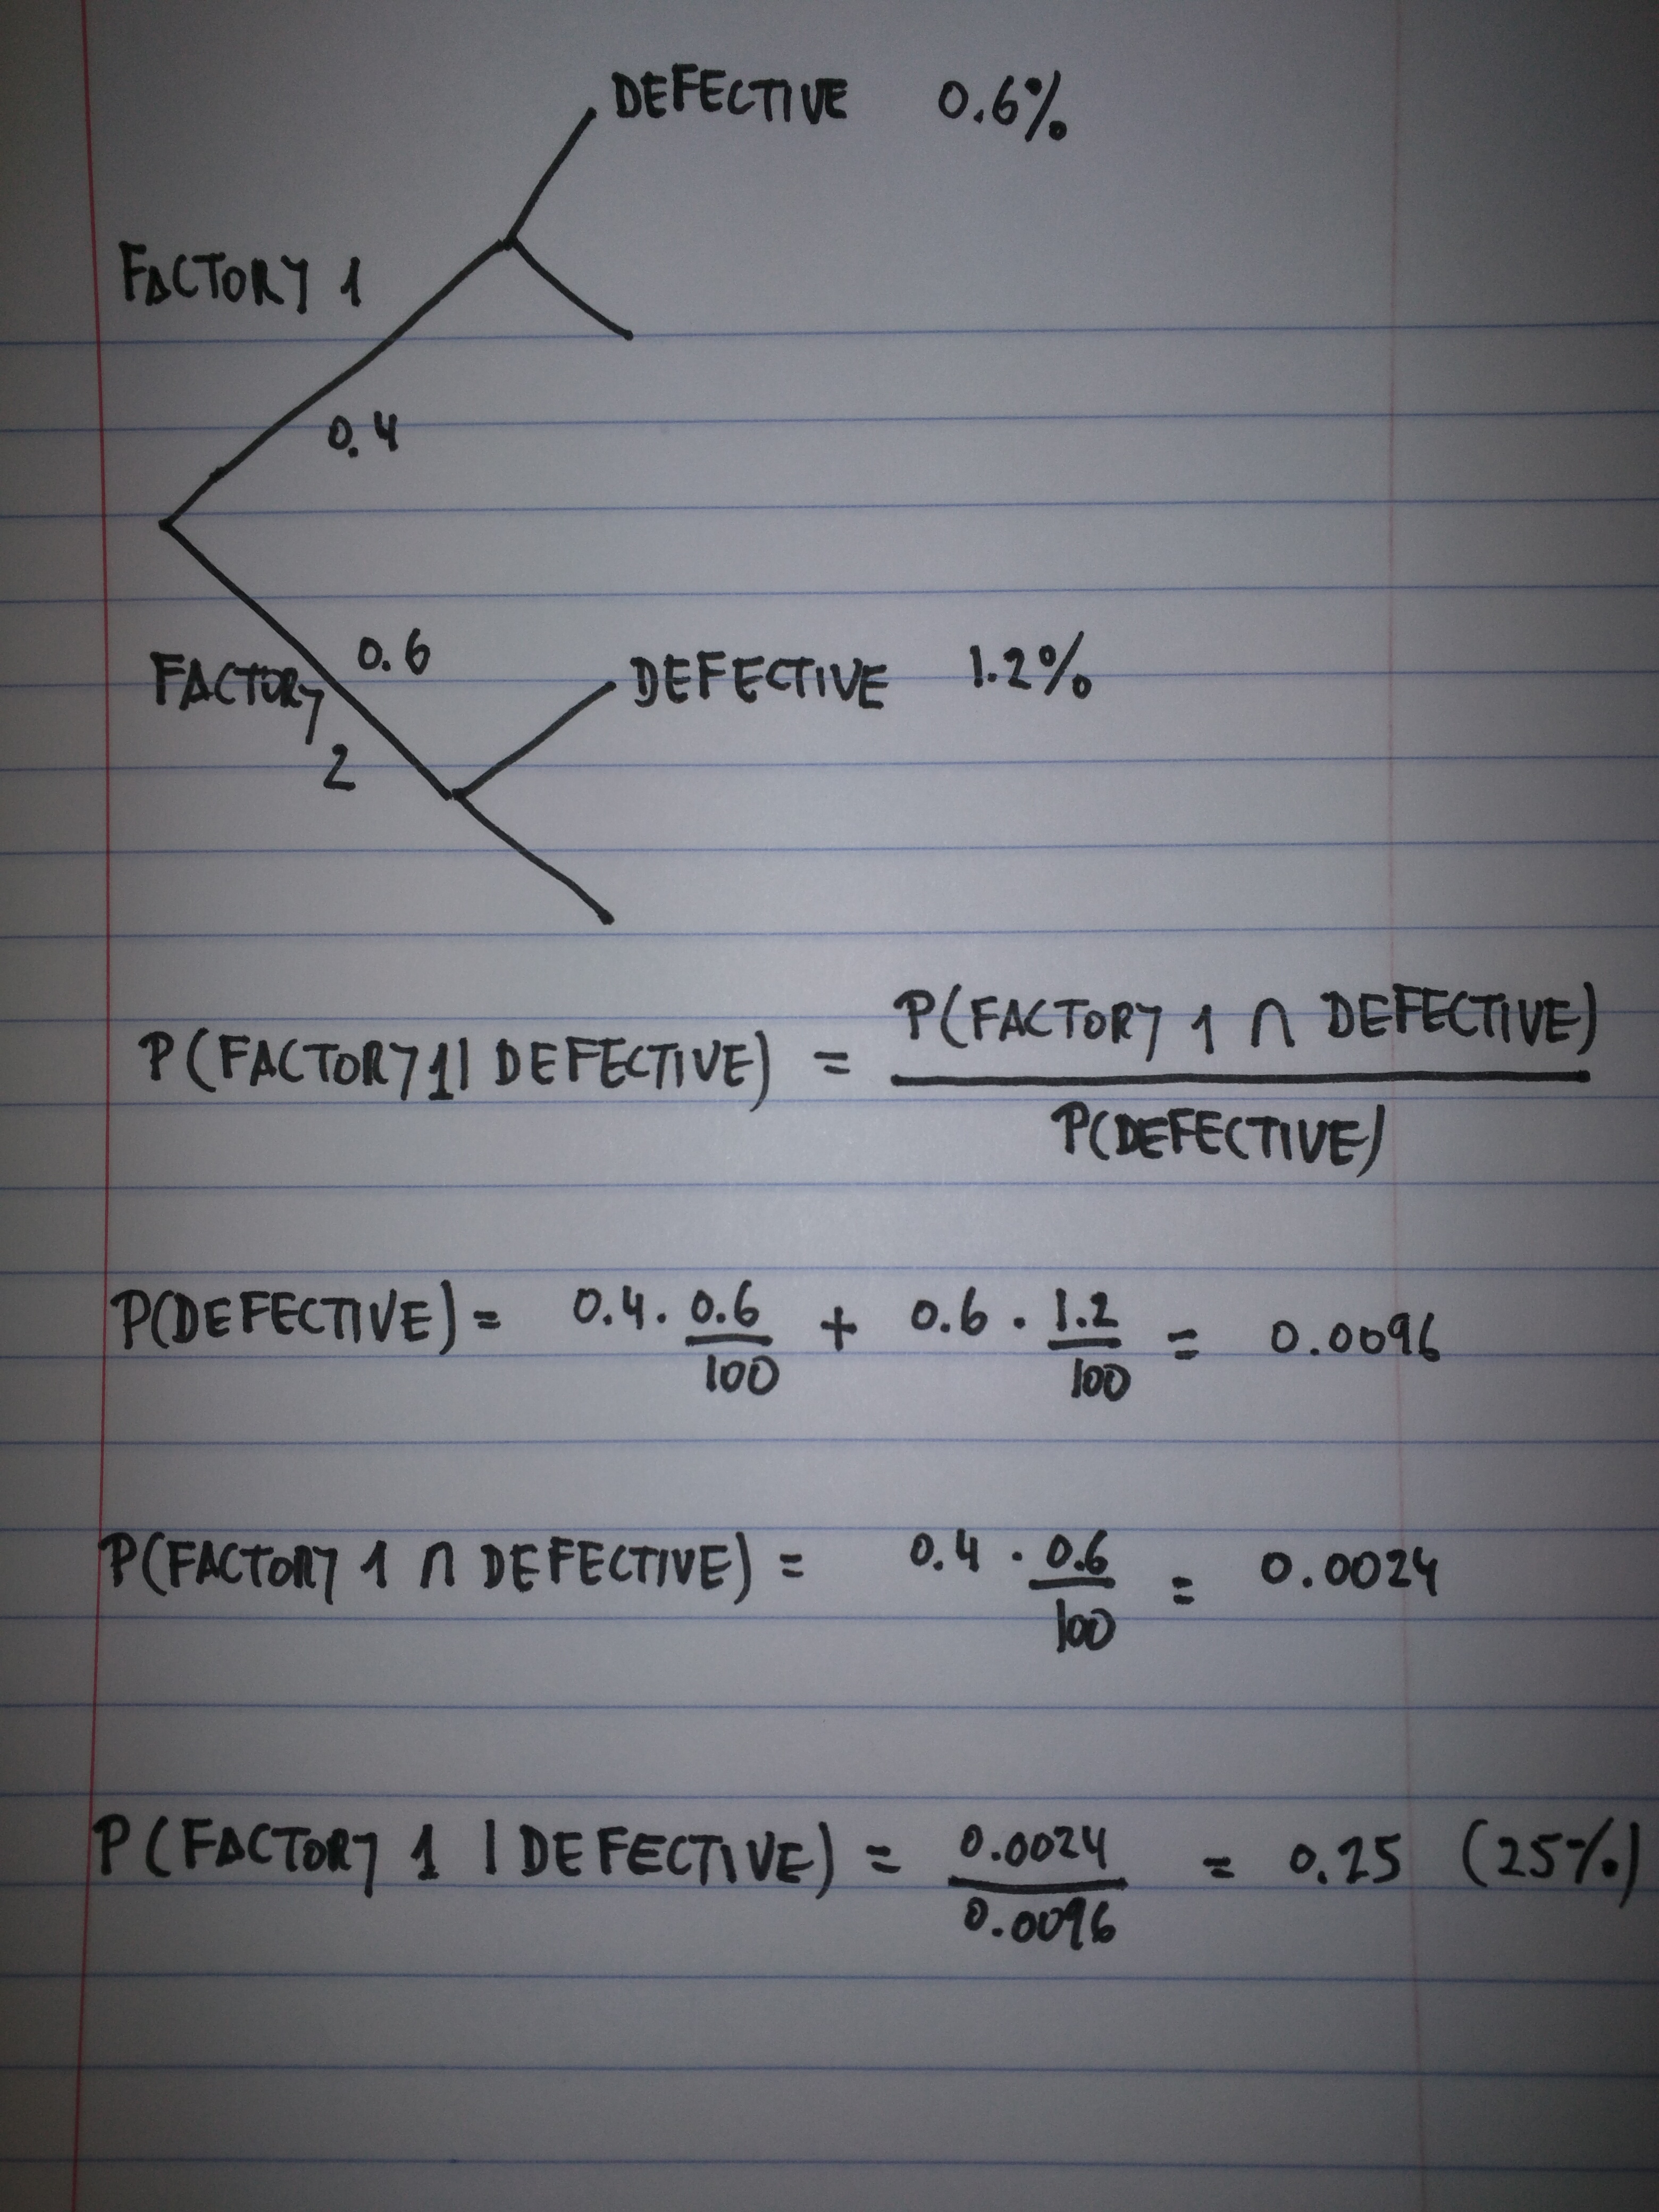 DEFECTIVE 0.6%
FACTORY 1
0.4
0.6
FACTORY
2
DEFECTIVE 1.2%
P(FACTORY 1 | DEFECTIVE) = P(FACTORY 1 ∩ DEFECTIVE)
P(DEFECTIVE)
P(DEFECTIVE) = 0.4 · 0.6/100 + 0.6 · 1.2/100 = 0.0096
P(FACTORY 1 ∩ DEFECTIVE) = 0.4 · 0.6/100 = 0.0024
P(FACTORY 1 | DEFECTIVE) = 0.0024/0.0096 = 0.25 (25%)